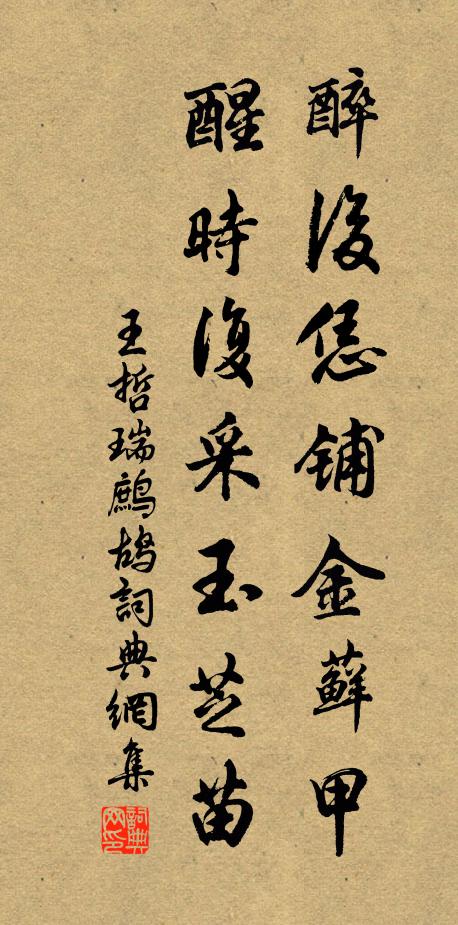 醉後恁鋪金蘚甲
醒時復采玉芝苗
王哲瑞鷓鴣詞典網集
詞典網印